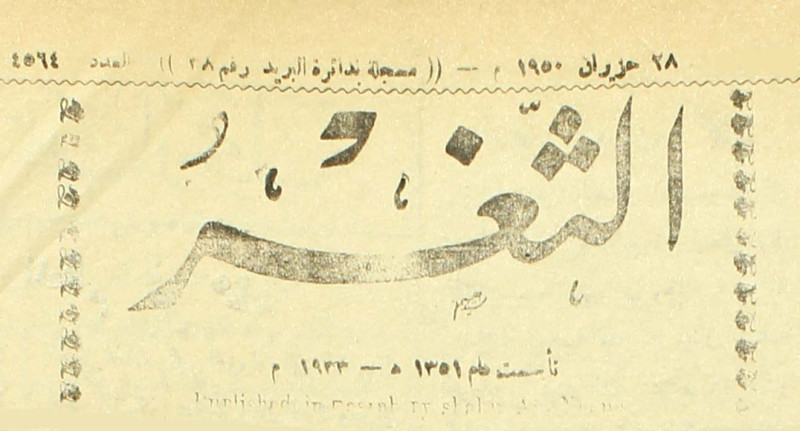 ٢٨ حزيران ١٩٥٠ م — (( مسجلة بدائرة البريد رقم ٢٨ )) العدد ٤٥٦٤
الثّغر
تأسست عام ١٣٥١ ه — ١٩٣٣ م
Published in